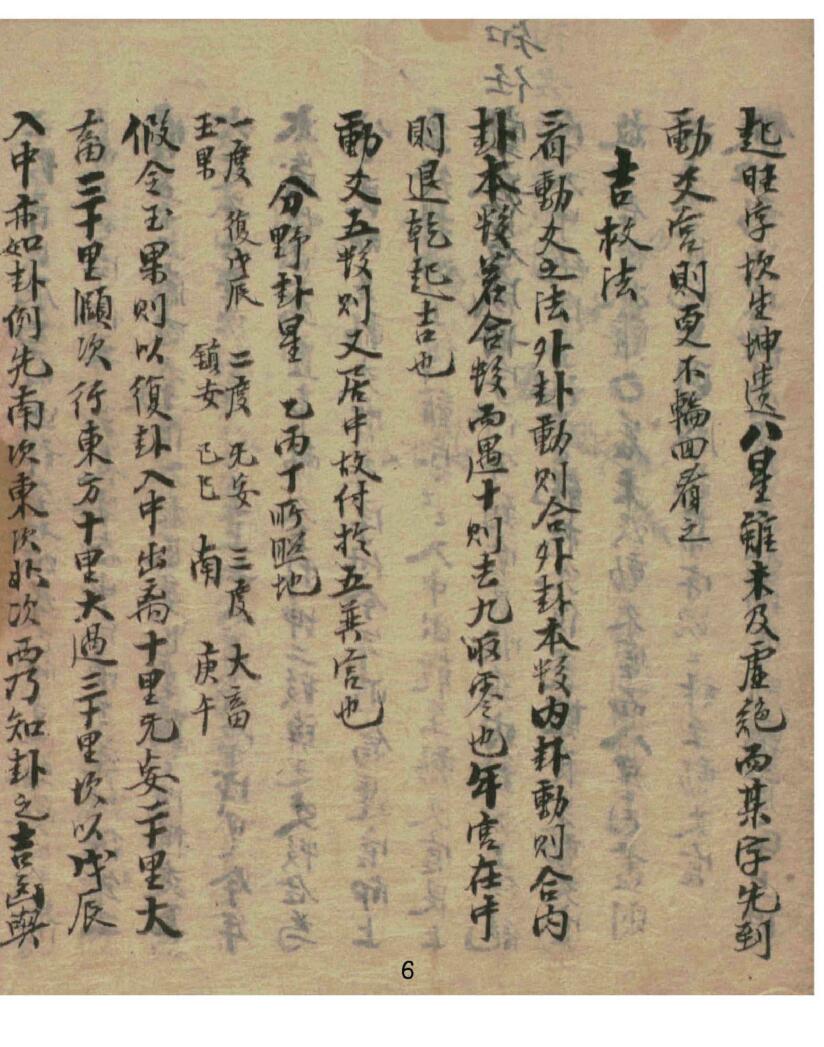 起旺字坎生坤遺八星雖未及虛絶而某字先到
動爻宮則更不輪回看之
吉救法
三看動爻之法外卦動則合外卦本数内卦動則合内
卦本数若合数而過十則去九取零也年宮在中
則退乾起吉也
動爻五数則又居中故付於五巽宮也
分野卦星 乙丙丁所照地
一度 復戊辰 二度 无妄 三度 大畜
玉果 鎮安 己巳 南 庚午
假令玉果則以復卦入中出离十里无妄二十里大
畜三十里頤次行東方十里大過三十里坎以戊辰
入中亦如卦例先南次東次北次西乃知卦之吉凶與
6